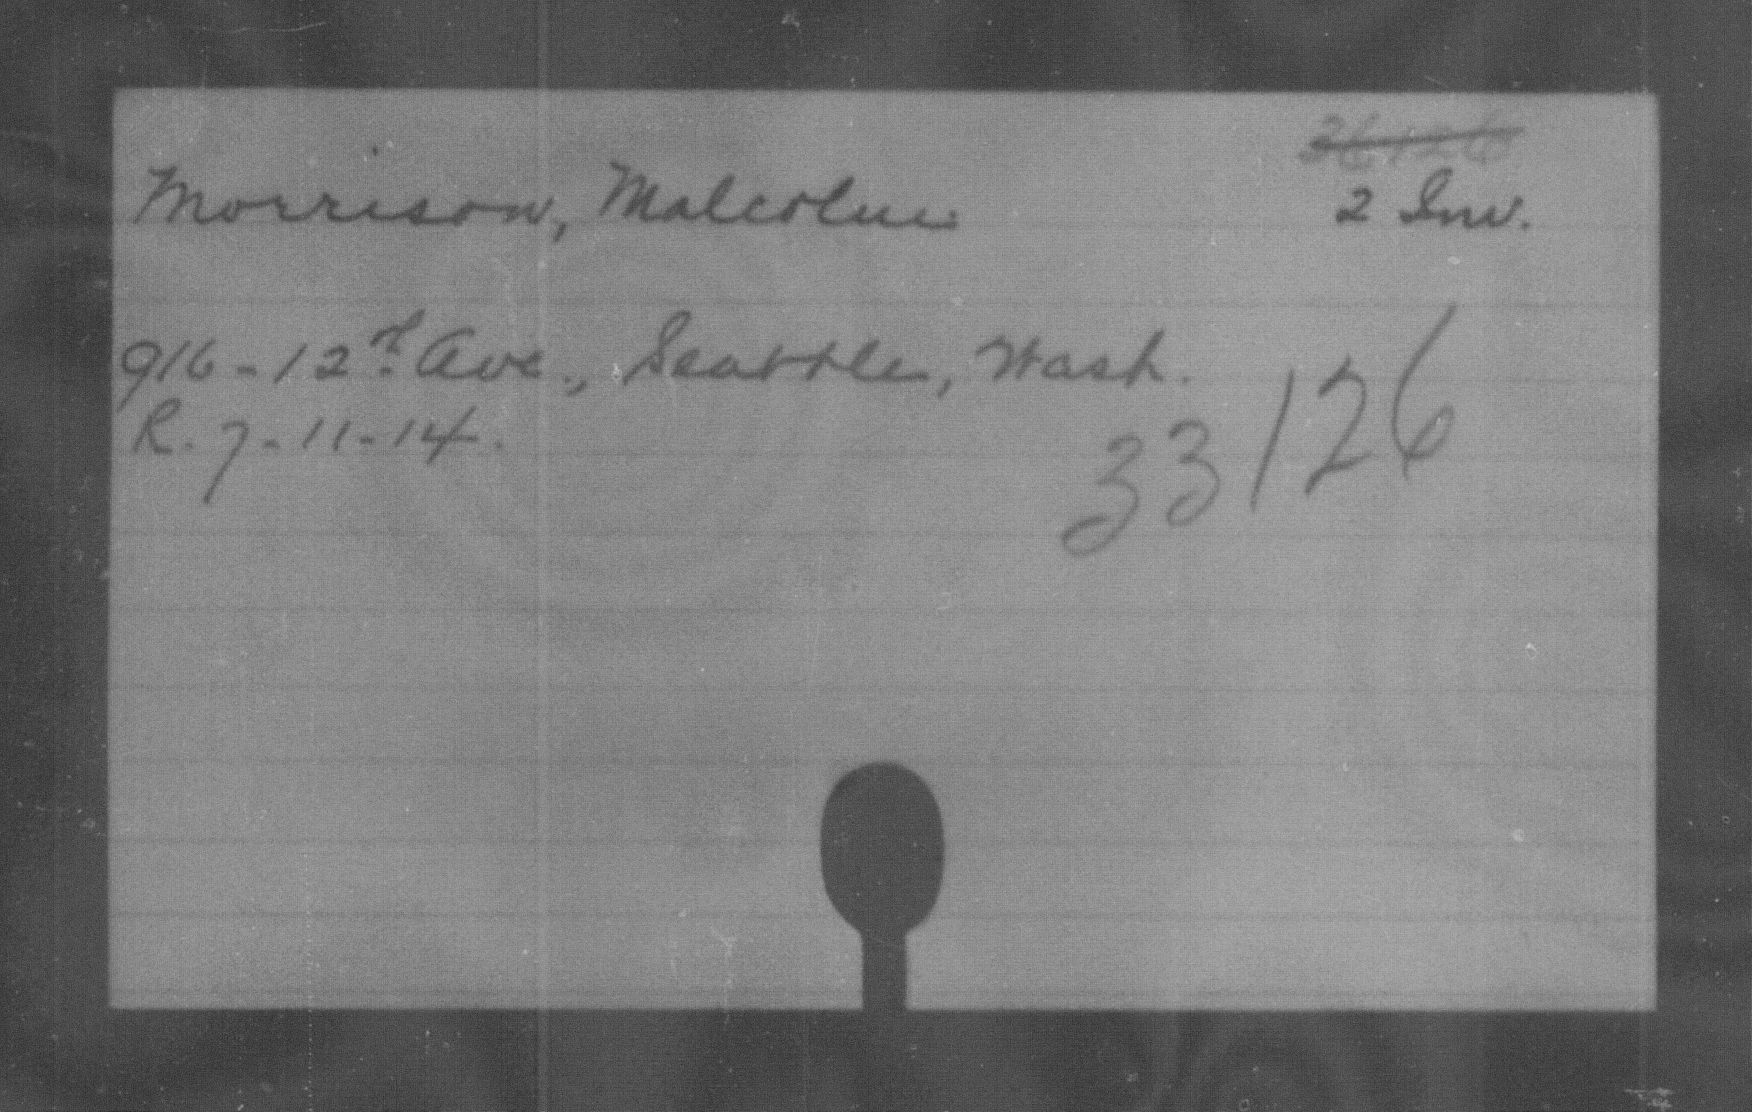 Morrison, Malcolm.
2 Inv.
916-12th Ave., Seattle, Wash.
R. 7-11-14.
33126